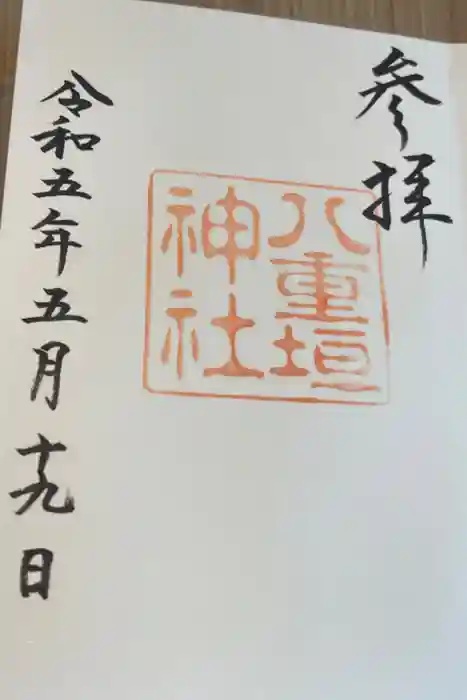 参拝
八重垣
神社
令和五年五月十九日